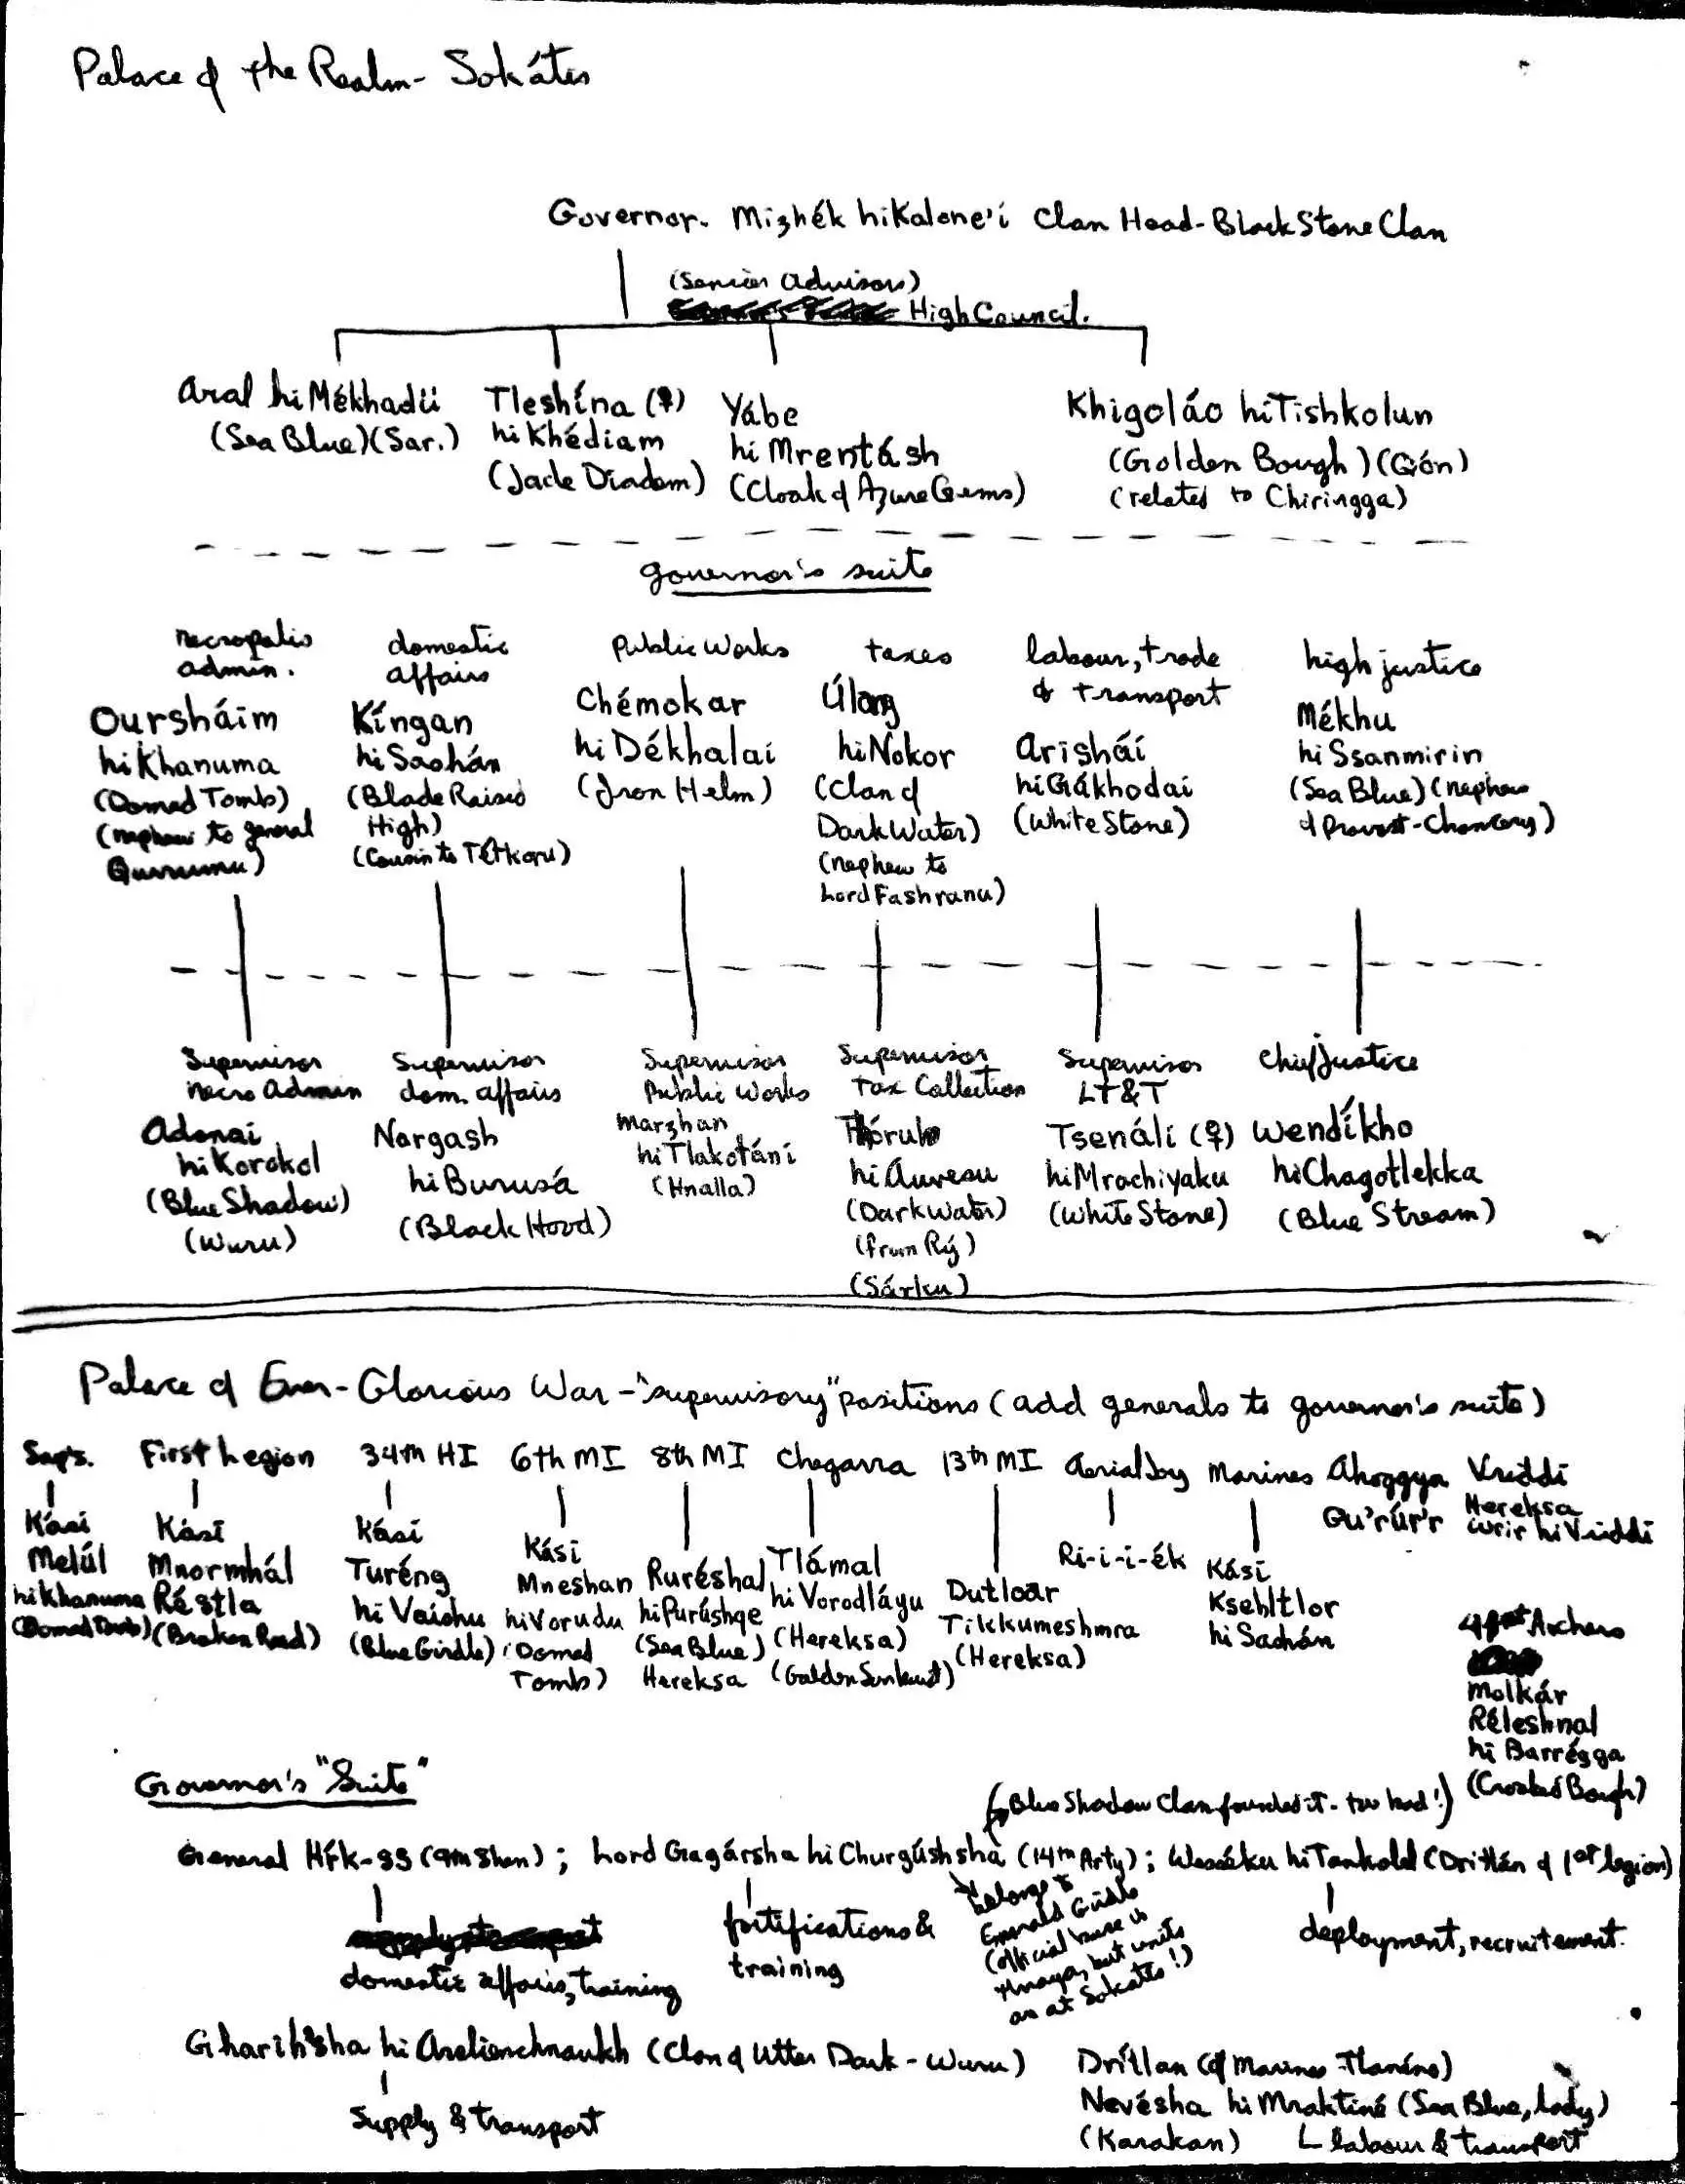 Palace of the Realm - Sokátis
Governor. Mizhék hiKalone'i Clan Head - Black Stone Clan
(Senior Advisors)
High Council.
Aral hiMékhadii
(Sea Blue) (Sar.)
Tleshína (♀)
hiKhédiam
(Jade Diadem)
Yábe
hiMrentásh
(Cloak of Azure Gems)
Khigoláo hiTishkolun
(Golden Bough) (Qón)
(related to Chiringga)
governor's suite
necropolis
admin.
Oursháim
hiKhanuma
(Domed Tomb)
(nephew to general
Qurrumu)
domestic
affairs
Kíngan
hiSaohán
(Blade Raised
High)
(Cousin to Tétkoru)
Public Works
Chémokar
hiDékhalai
(Iron Helm)
taxes
Úlang
hiNokor
(Clan of
Dark Water)
(nephew to
Lord Fashranu)
labour, trade
& transport
Arishái
hiGákhodai
(White Stone)
high justice
Mékhu
hiSsanmirin
(Sea Blue) (nephew
of Provost-Chancery)
Supervisor
necro Admin
Adonai
hiKorokol
(Blue Shadow)
(Wuru)
Supervisor
dom. affairs
Nargash
hiBurusá
(Black Hood)
Supervisor
Public Works
Marzhan
hiTlakotáni
(Hnalla)
Supervisor
Tax Collection
hiAuvesu
(Dark Water)
(from Rÿ)
(Sárku)
Supervisor
LT&T
Tsenáli (♀)
hiMrachiyaku
(White Stone)
Chief Justice
Wendíkho
hiChagotlekka
(Blue Stream)
Palace of Ever-Glorious War - "supervisory" positions (add generals to governor's suite)
Sap's.
Kási
Melúl
hiKhanuma
(Domed Tomb)
First Legion
Kási
Mnormhál
Réstla
(Broken Reed)
34th HI
Kási
Turéng
hiVaishu
(Blue Girdle)
6th MI
Kási
Mneshan
hiVorudu
(Domed
Tomb)
8th MI
Ruréshal
hiPurúshqe
(Sea Blue)
Hereksa
Chegarra
Tlámal
hiVorodláyu
(Hereksa)
(Golden Sunburst)
13th MI
Dutloar
Tikkumeshmra
(Hereksa)
Ri-i-i-ék
Marines
Kási
Ksehltlor
hiSaohán
Ahoggya
Gu'rúr'r
Vriddi
Hereksa
hiVriddi
Archers
Molkár
Réleshnal
hi Barrégga
(Crooked Bough)
Governor's "Suite"
(Blue Shadow Clan founded it - too bad!)
General Hŕk-ss (9th Shen); Lord Gagársha hiChurgúshsha (14th Arty); hiTankolel (Dritlán of 1st legion)
domestic affairs, training
fortifications &
training
belongs to
Emerald Girdle
(official name is
but units
are at Sokátis!)
deployment, recruitement.
Gharihʼsha hi (Clan of Utter Dark - Wuru)
Supply & transport
Drítlan (of Marines Flaníno)
Nevésha hi Mraktiné (Sea Blue, lady)
(Karakan) └ labour & transport